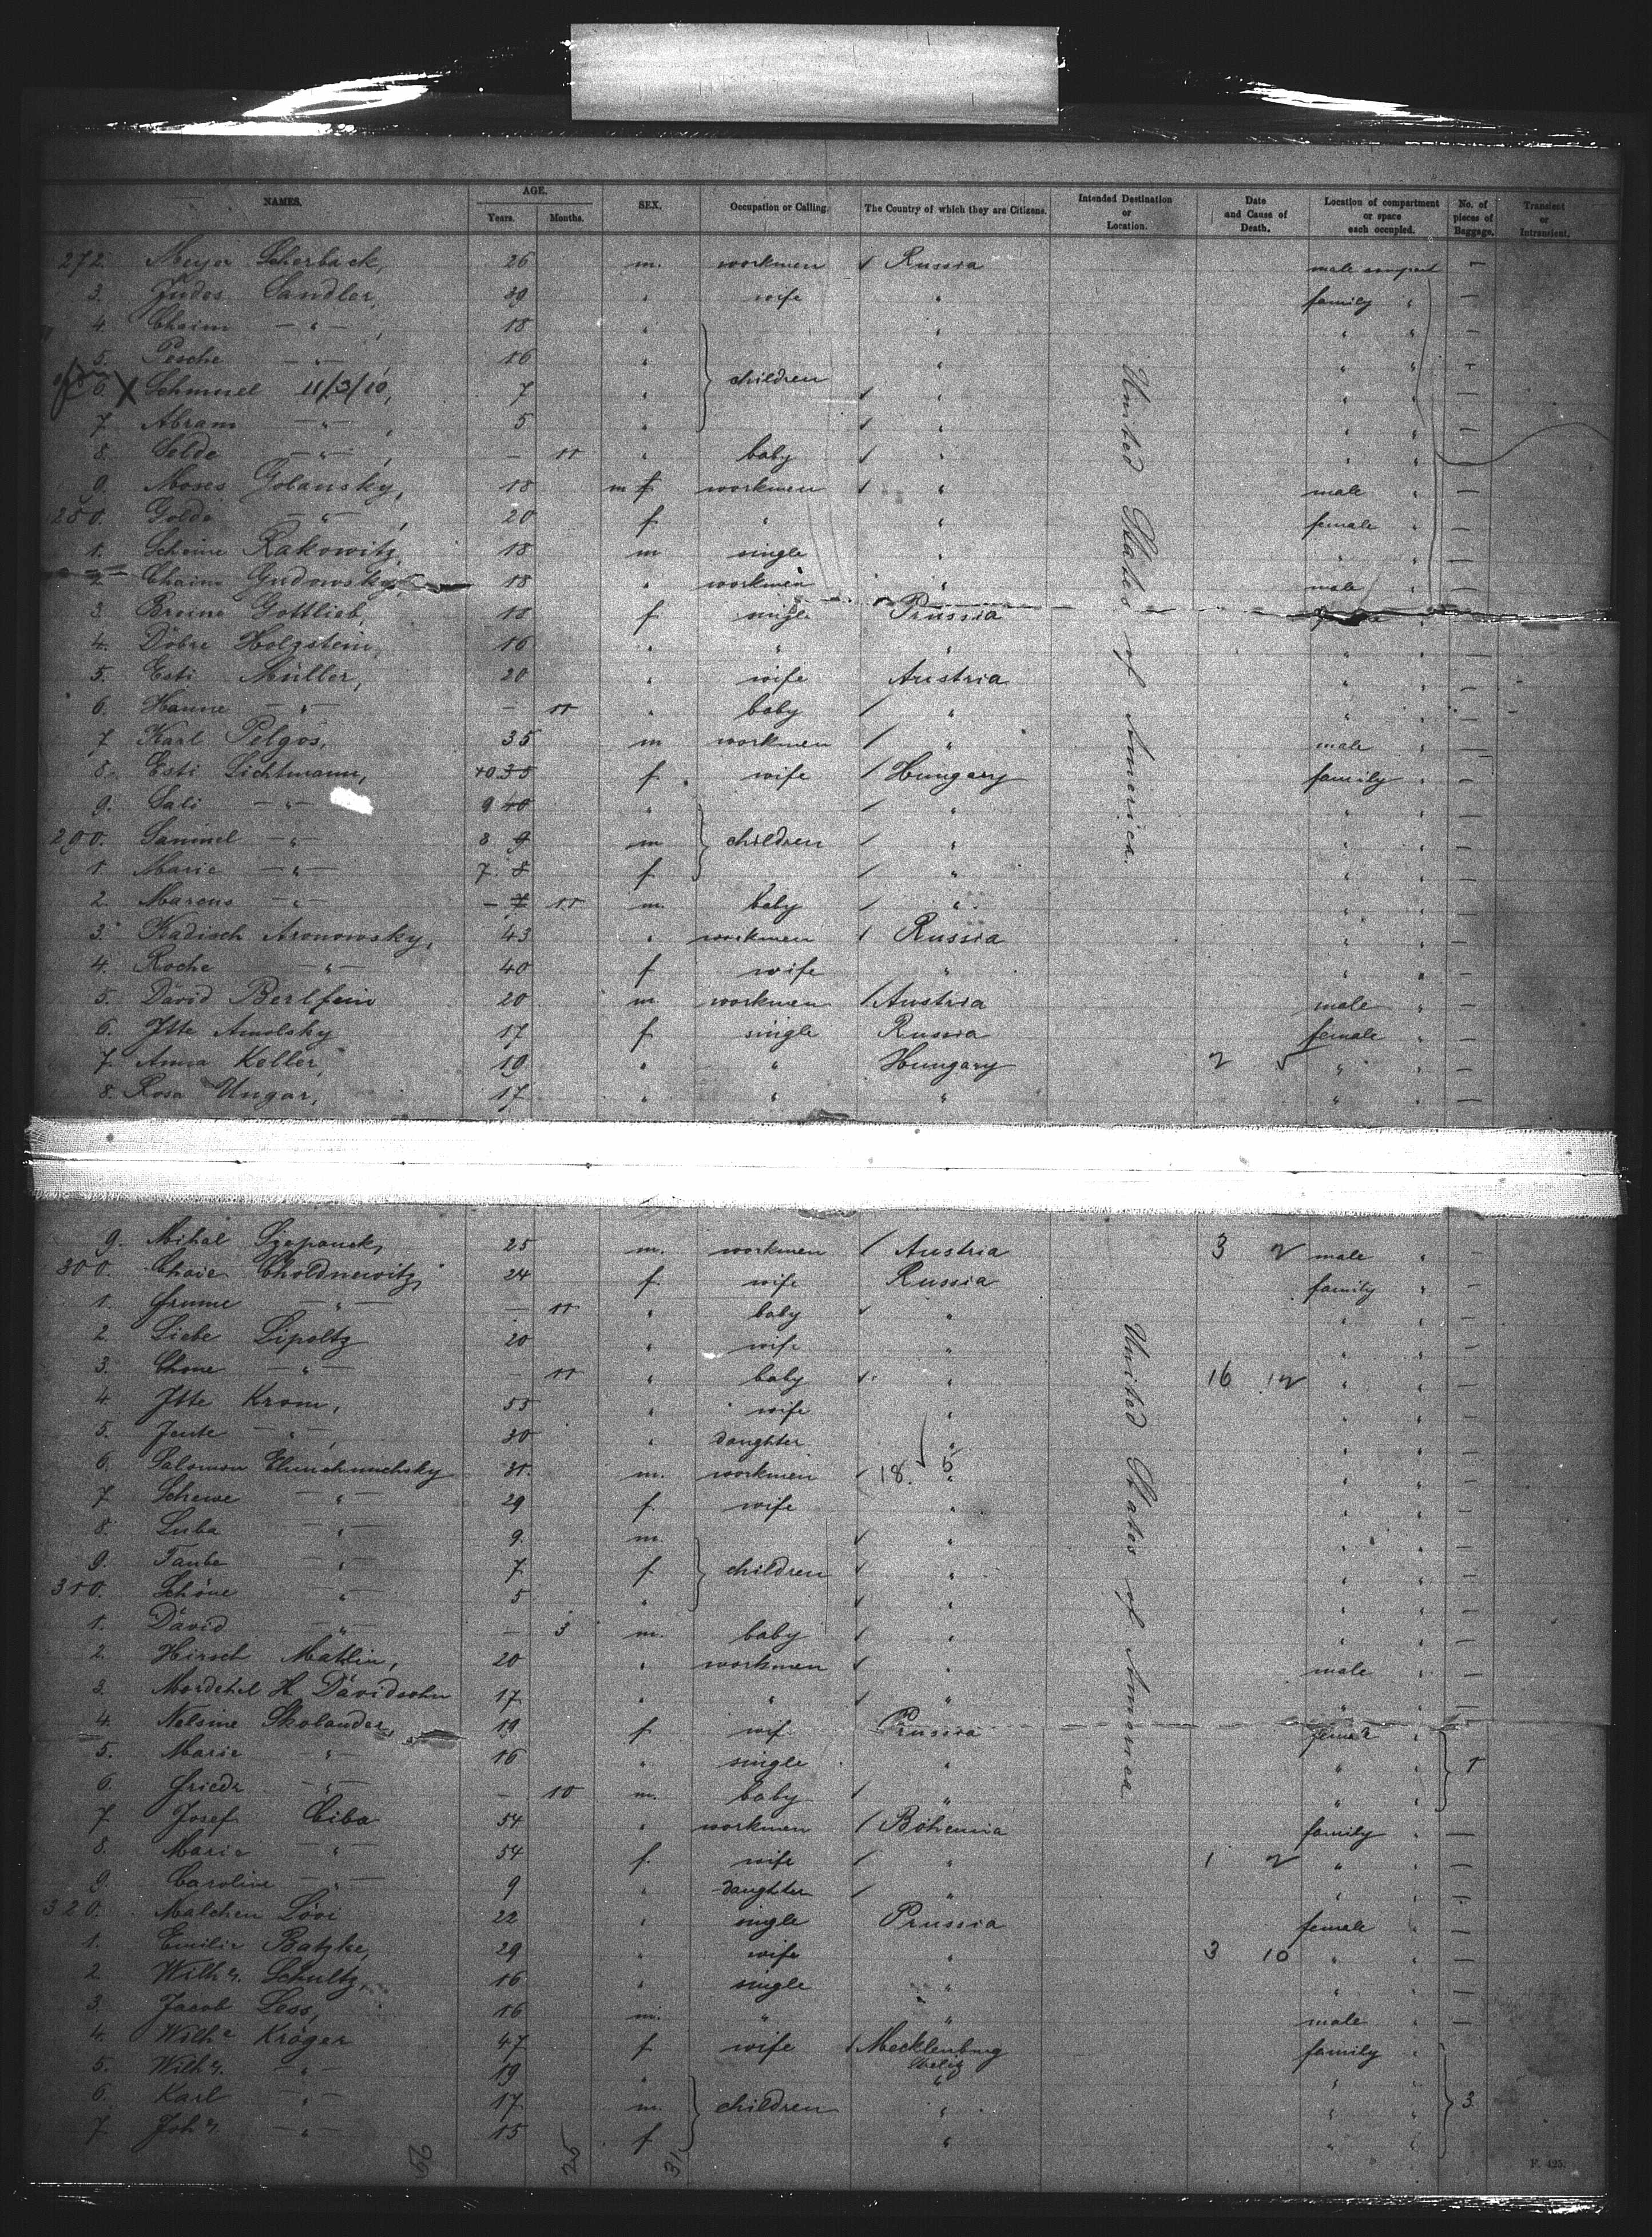 NAMES. AGE. Years. Months. SEX. Occupation or Calling. The Country of which they are Citizens. Intended Destination or Location. Date and Cause of Death. Location of compartment or space each occupied. No. of pieces of Baggage. Transient or Intransient.
272. Meyer Scherback, 26 m. workmen Russia male compart —
3. Judes Sandler, 39 " wife " family " —
4. Chaim — " —, 18 " " " " —
5. Pesche — " — 16 " " " "
6. X Schmuel 11/3/10, 7 " children " " " —
7. Abram — " —, 5 " " " " —
8. Selde — " —, — 11 " baby " " " —
9. Moses Golansky, 18 m f workmen " male " —
280. Golde — " —, 20 f " " female " —
1. Scheine Rakowitz, 18 m single " " " —
2. Chaim Gudowsky, 18 " workmen " male
3. Breine Gottlieb, 18 f single Prussia
4. Dobre Holzstein, 16 " " " " " —
5. Esti Müller, 20 " wife Austria " " —
6. Hanne — " — — 11 " baby " " " —
7. Karl Pelgös, 35 m workmen " male " —
8. Esti Lichtmann, 40 35 f. wife Hungary family " —
9. Sali — " — 9 40 " " " " —
290. Samuel — " — 8 9 m children " " " —
1. Marie — " — 7. 8 f " " " —
2. Marcus — " — — 7 11 m. baby " " " —
3. Kadisch Aronowsky, 43 " workmen Russia " " —
4. Roche — " — 40 f wife " " " —
5. David Berlfein 20 m workmen Austria male " —
6. Jtte Amolsky 17 f single Russia female " —
7. Anna Keller, 19 " " Hungary 2 " " —
8. Rosa Ungar, 17 " " " " " —
United States of America.
9. Mihal Szepanek, 25 m. workmen Austria 3 2 male " —
300. Chaie Choldnewitz, 24 f. wife Russia family " —
1. Frume — " — — 11 " baby " " " —
2. Liebe Lipoltz 20 " wife " " " —
3. Chone — " — — 11 " baby " 16 12 " " —
4. Jtte Krom, 55 " wife " " " —
5. Jente — " —, 30 " daughter " " " —
6. Salomon 31. m. workmen 18. 5 " " " —
7. Schewe — " — 29 f. wife " " " —
8. Luba — " — 9. m. " " " —
9. Taube — " — 7 f children " " " —
310. Schöne — " — 5 " " " " —
1. David — " — — 3 m. baby " " " —
2. Hirsch Matlin, 20 " workmen " male " —
3. Mordchel H. Davidsohn 17 " " " " " —
4. Nelsine Skolander, 19 f. wife Prussia female "
5. Marie — " — 16 " single " " " 1
6. Friedr — " — — 10 m. baby " " "
7. Josef Ciba 54 " workmen Bohemia family " —
8. Marie — " — 54 f. wife " 1 2 " " —
9. Caroline — " — 9 " daughter " " " —
320. Malchen Lövi 22 " single Prussia female " —
1. Emilie Batzke, 29 " wife " 3 10 " " —
2. Wilh. Schultz, 16 " single " " " —
3. Jacob Less, 16 m. " " male " —
4. Wilhe Kröger 47 f wife Mecklenburg family "
Strelitz
5. Wilh. — " — 19 " " " "
6. Karl — " — 17 m. children " " " 3
7. Joh. — " — 15 f " " "
United States of America.
F. 425.